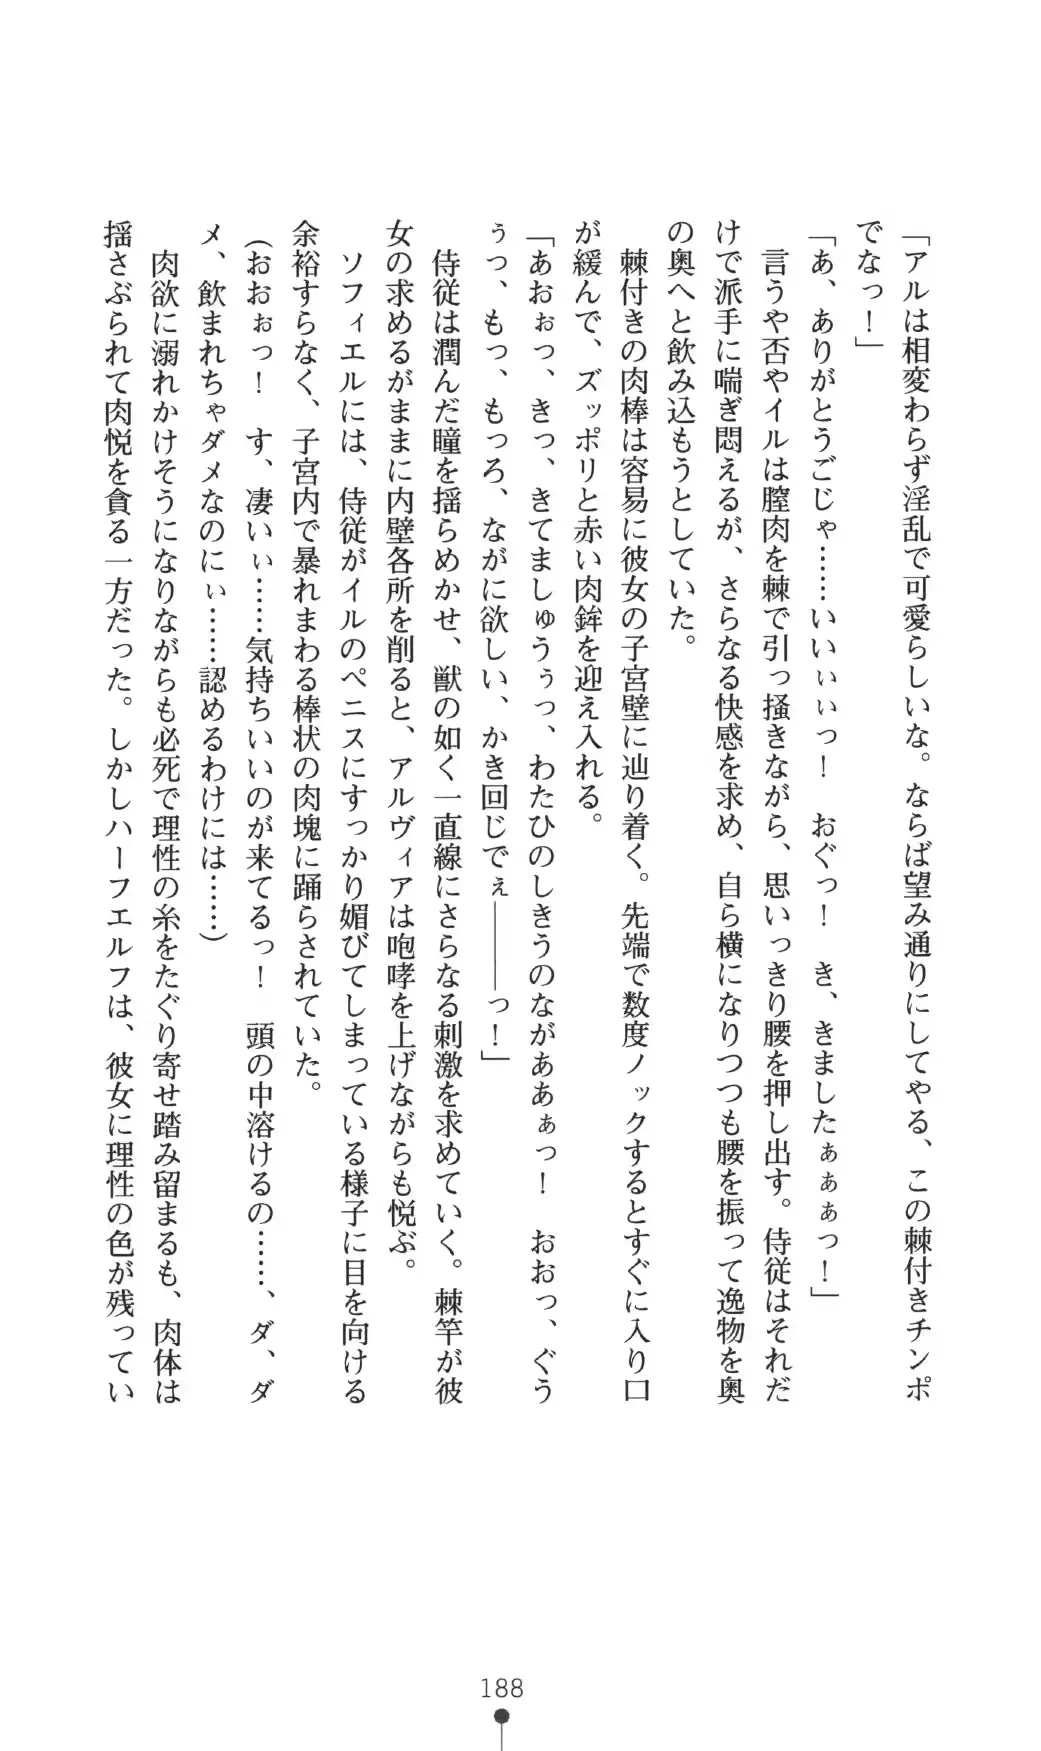 「アルは相変わらず淫乱で可愛らしいな。ならば望み通りにしてやる、この棘付きチンポ
でなっ！」
「あ、ありがとうごじゃ……いいぃぃっ！　おぐっ！　き、きましたぁぁぁっ！」
　言うや否やイルは膣肉を棘で引っ掻きながら、思いっきり腰を押し出す。侍従はそれだ
けで派手に喘ぎ悶えるが、さらなる快感を求め、自ら横になりつつも腰を振って逸物を奥
の奥へと飲み込もうとしていた。
　棘付きの肉棒は容易に彼女の子宮壁に辿り着く。先端で数度ノックするとすぐに入り口
が緩んで、ズッポリと赤い肉鉾を迎え入れる。
「あおぉっ、きっ、きてましゅうぅっ、わたひのしきうのながああぁっ！　おおっ、ぐう
ぅっ、もっ、もっろ、ながに欲しい、かき回じでぇ―――っ！」
　侍従は潤んだ瞳を揺らめかせ、獣の如く一直線にさらなる刺激を求めていく。棘竿が彼
女の求めるがままに内壁各所を削ると、アルヴィアは咆哮を上げながらも悦ぶ。
　ソフィエルには、侍従がイルのペニスにすっかり媚びてしまっている様子に目を向ける
余裕すらなく、子宮内で暴れまわる棒状の肉塊に踊らされていた。
（おおぉっ！　す、凄いぃ……気持ちいいのが来てるっ！　頭の中溶けるの……、ダ、ダ
メ、飲まれちゃダメなのにぃ……認めるわけには……）
　肉欲に溺れかけそうになりながらも必死で理性の糸をたぐり寄せ踏み留まるも、肉体は
揺さぶられて肉悦を貪る一方だった。しかしハーフエルフは、彼女に理性の色が残ってい
188